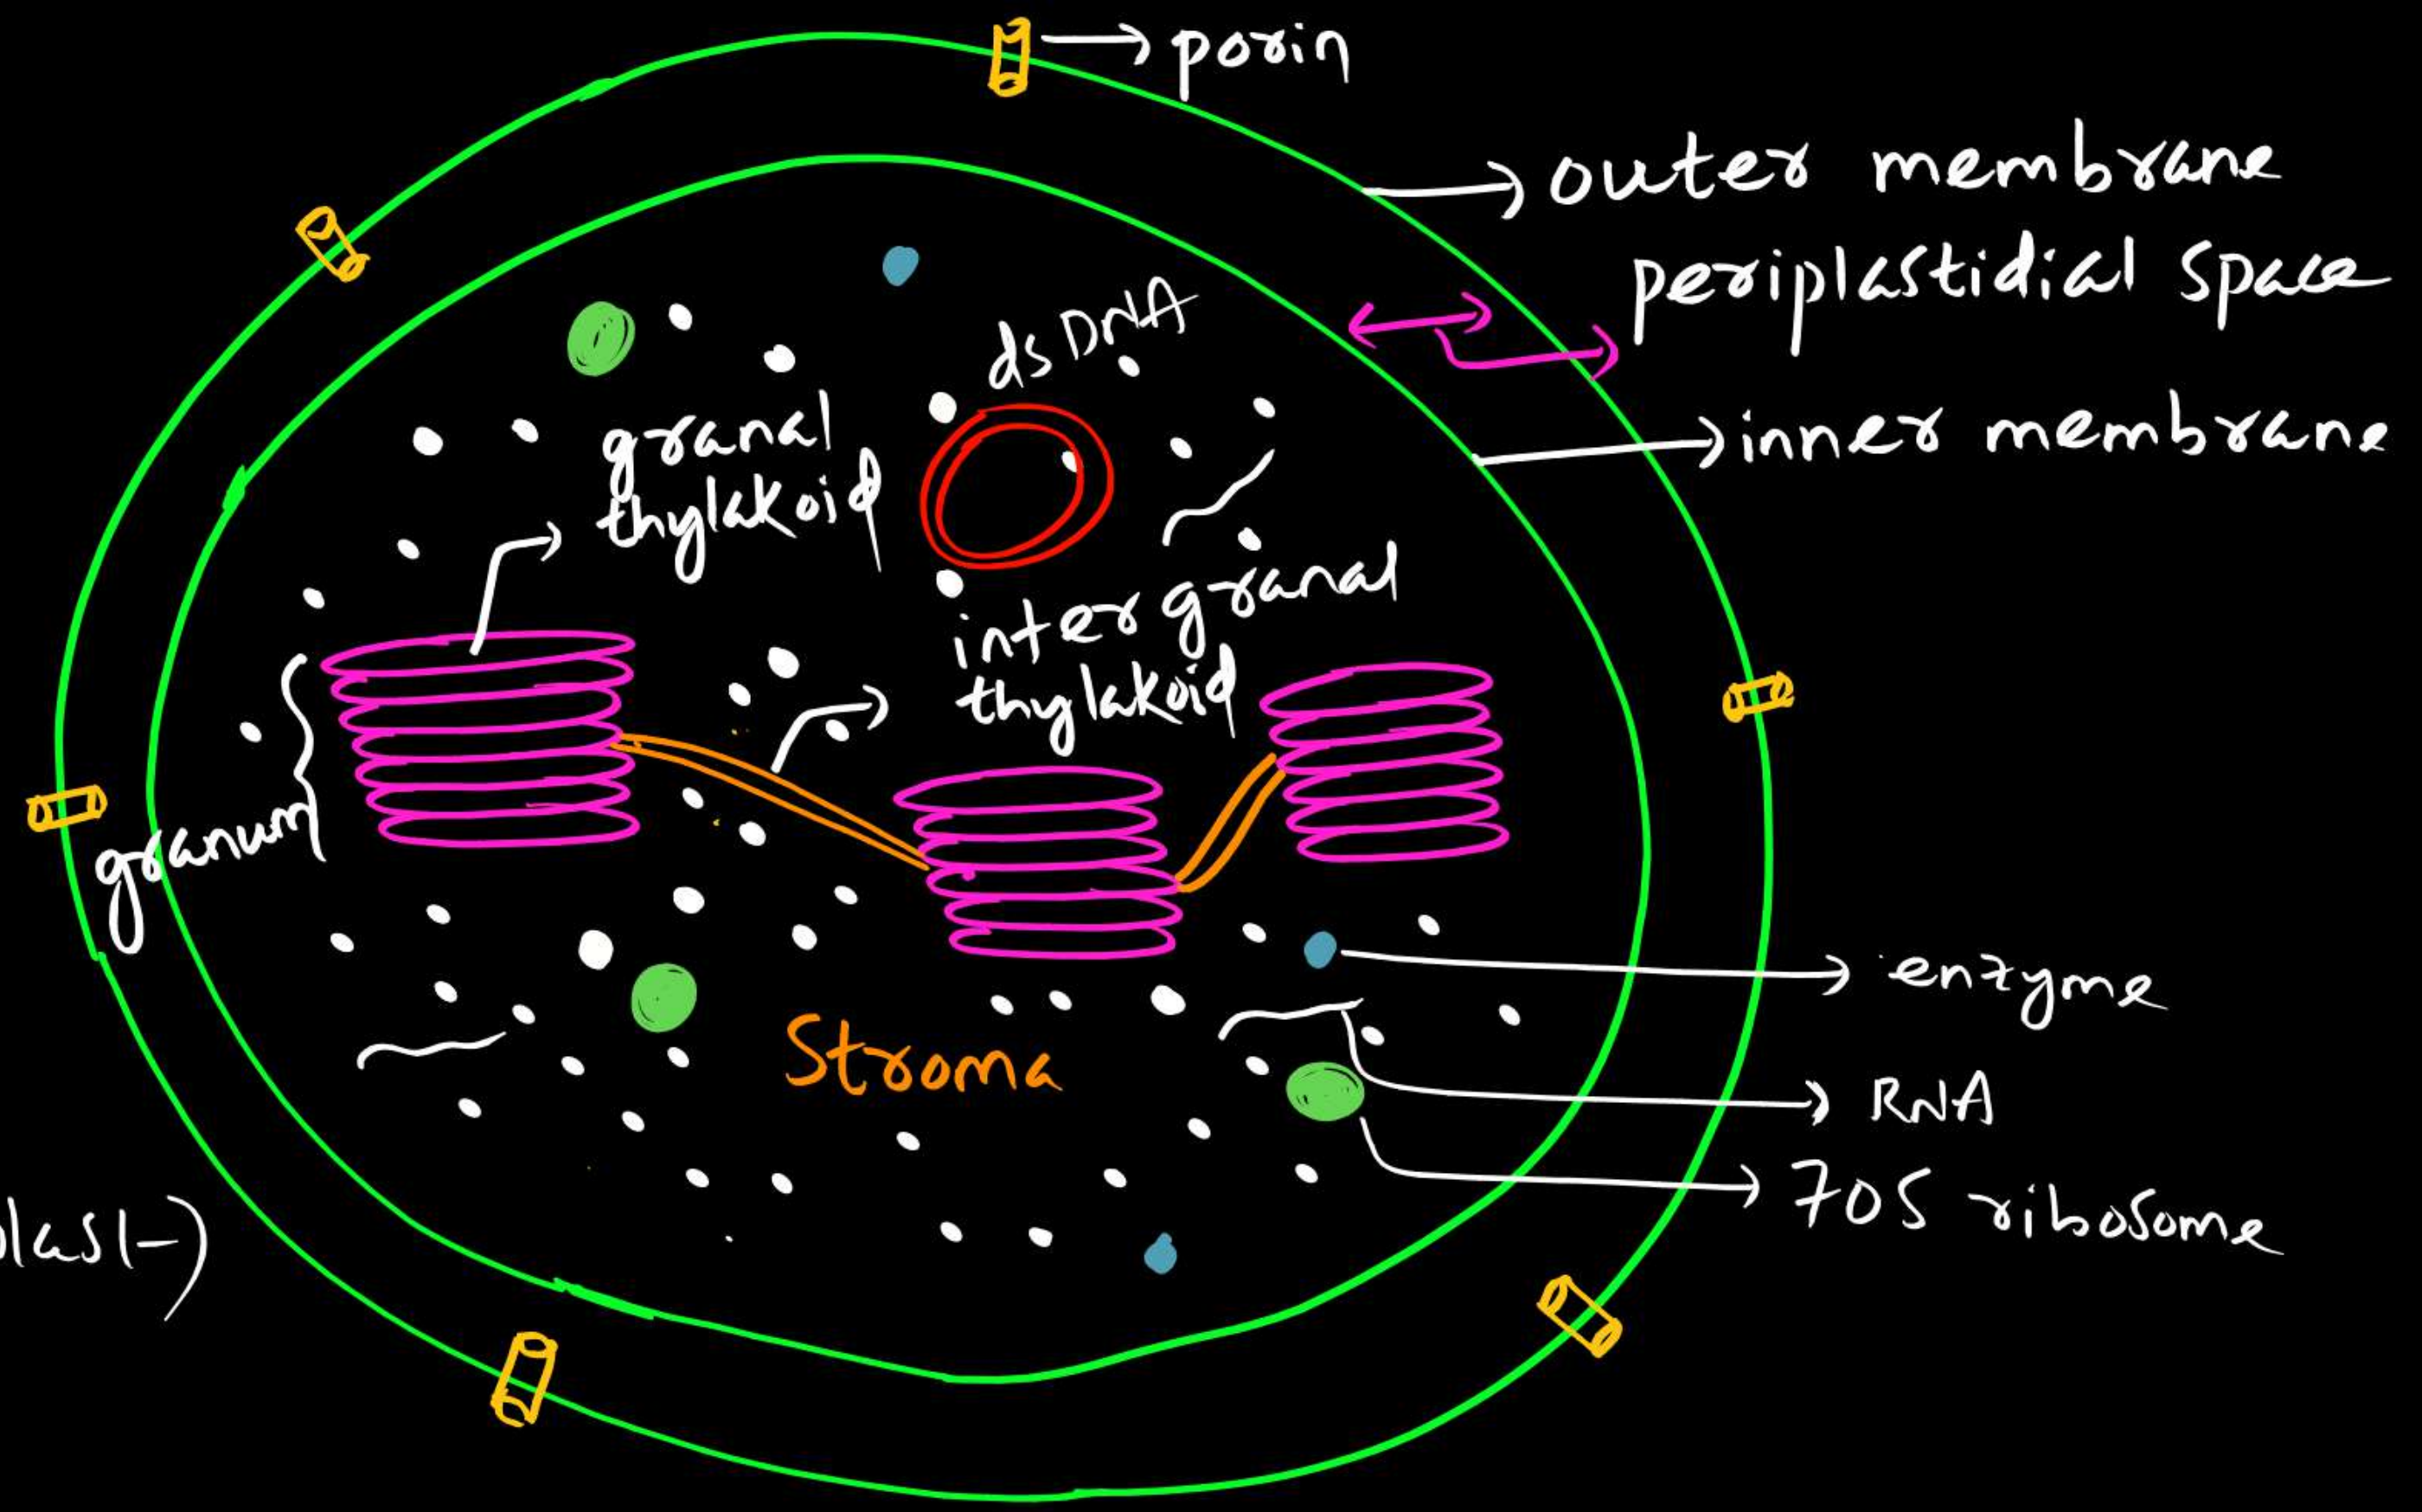 porin
outer membrane
periplastidial space
inner membrane
ds DNA
granal
thylakoid
inter granal
thylakoid
granum
enzyme
Stroma
RNA
70S ribosome